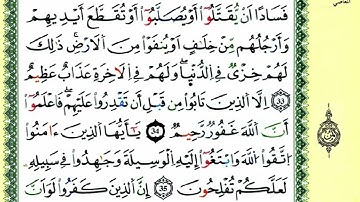 فَسَادًا اَنْ يُّقَتَّلُوٓا اَوْ يُصَلَّبُوٓا اَوْ تُقَطَّعَ اَيْدِيهِمْ
وَاَرْجُلُهُم مِّنْ خِلَٰفٍ اَوْ يُنفَوْا مِنَ الَارْضِ ذَٰلِكَ
لَهُمْ خِزْيٌ فِي الدُّنْيَا وَلَهُمْ فِي الَاخِرَةِ عَذَابٌ عَظِيمٌ
33 اِلَّا الَّذِينَ تَابُوا مِن قَبْلِ أَن تَقْدِرُوا عَلَيْهِمْ فَاعْلَمُوٓا
أَنَّ اللَّهَ غَفُورٌ رَّحِيمٌ 34 يَٰٓأَيُّهَا الَّذِينَ ءَامَنُوا
اتَّقُوا اللَّهَ وَابْتَغُوٓا إِلَيْهِ الْوَسِيلَةَ وَجَٰهِدُوا فِي سَبِيلِهِ
لَعَلَّكُمْ تُفْلِحُونَ 35 إِنَّ الَّذِينَ كَفَرُوا لَوَ اَنَّ